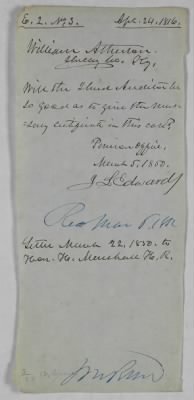 E. 2. No. 3. Apl. 24. 1816.
William Atherton.
Shelby Co. Ky.
Will the Third Auditor be
so good as to give the neces-
sary certificate in this case?
Pension Office,
March 5. 1850.
J L Edwards
Rec Mar 5
Letter March 22, 1850. to
Hon. H. Marshall H. R.